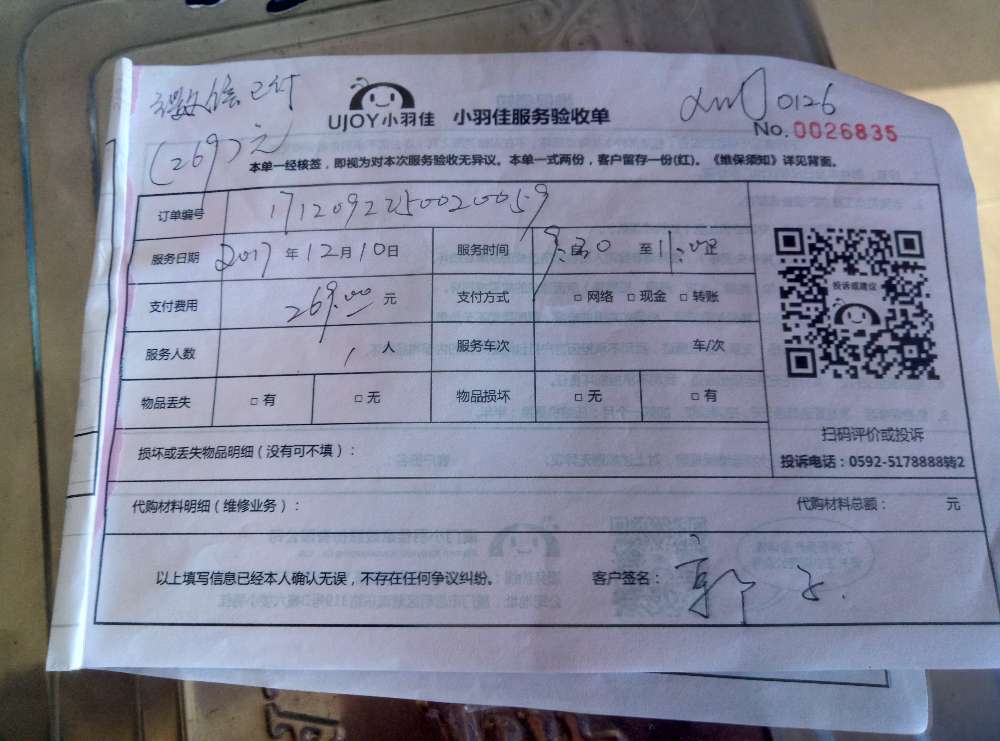 微信已付
(269)元
UJOY小羽佳 小羽佳服务验收单
XMJ0126
No.0026835
本单一经核签，即视为对本次服务验收无异议。本单一式两份，客户留存一份(红)。《维保须知》详见背面。
订单编号 1712092250020059
服务日期 2017年12月10日 服务时间 9:30 至 11:00
支付费用 269.00元 支付方式 □网络 □现金 □转账
服务人数 1人 服务车次 车/次
物品丢失 □有 □无 物品损坏 □无 □有
投诉或建议
扫码评价或投诉
投诉电话：0592-5178888转2
损坏或丢失物品明细（没有可不填）：
代购材料明细（维修业务）： 代购材料总额： 元
以上填写信息已经本人确认无误，不存在任何争议纠纷。 客户签名：